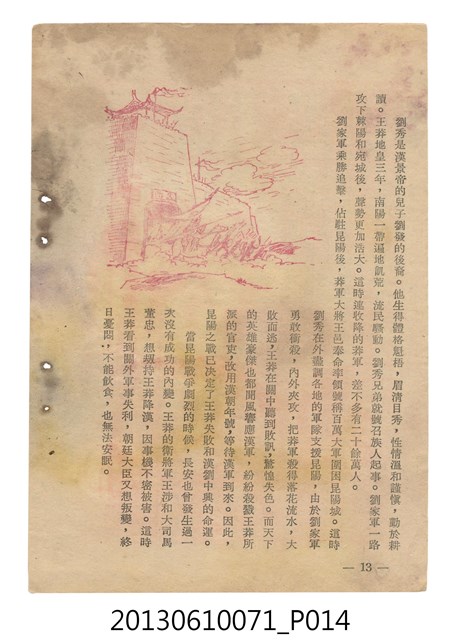 劉秀是漢景帝的兒子劉發的後裔。他生得體格魁梧，眉清目秀，性情溫和謹慎，勤於耕
讀。王莽地皇三年，南陽一帶遍地飢荒，流民騷動。劉秀兄弟就號召族人起事。劉家軍一路
攻下棘陽和宛城後，聲勢更加浩大。這時連收降的莽軍，差不多有二十餘萬人。
劉家軍乘勝追擊，佔駐昆陽後，莽軍大將王邑奉命率領號稱百萬大軍圍困昆陽城。這時
劉秀在外盡調各地的軍隊支援昆陽，由於劉家軍
勇敢衝殺，內外夾攻，把莽軍殺得落花流水，大
敗而逃，王莽在關中聽到敗訊，驚惶失色。而天下
的英雄豪傑也都聞風響應漢軍，紛紛殺戮王莽所
派的官吏，改用漢朝年號，等待漢軍到來。因此，
昆陽之戰已決定了王莽失敗和漢劉中興的命運。
當昆陽戰爭劇烈的時候，長安也曾發生過一
次沒有成功的內變。王莽的衛將軍王涉和大司馬
董忠，想刧持王莽降漢，因事機不密被害。這時
王莽看到關外軍事失利，朝廷大臣又想叛變，終
日憂悶，不能飲食，也無法安眠。
— 13 —
20130610071_P014